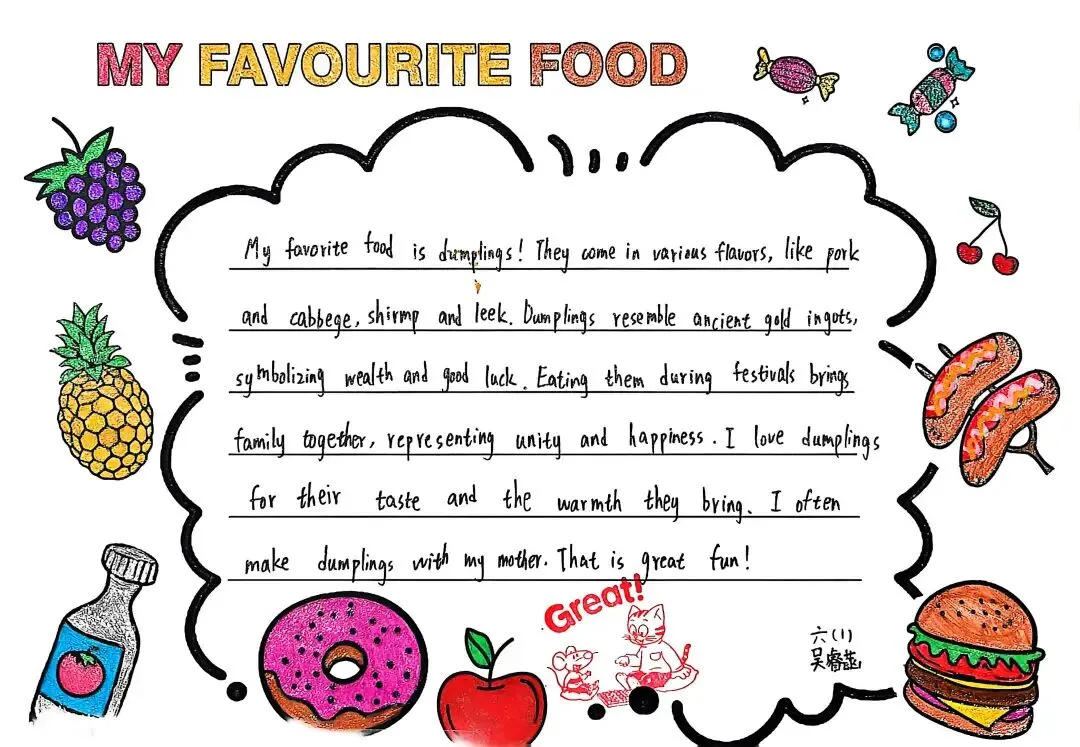 MY FAVOURITE FOOD
My favorite food is dumplings! They come in various flavors, like pork
and cabbege, shirmp and leek. Dumplings resemble ancient gold ingots,
symbolizing wealth and good luck. Eating them during festivals brings
family together, representing unity and happiness. I love dumplings
for their taste and the warmth they bring. I often
make dumplings with my mother. That is great fun!
Great!
六(1)
吴睿